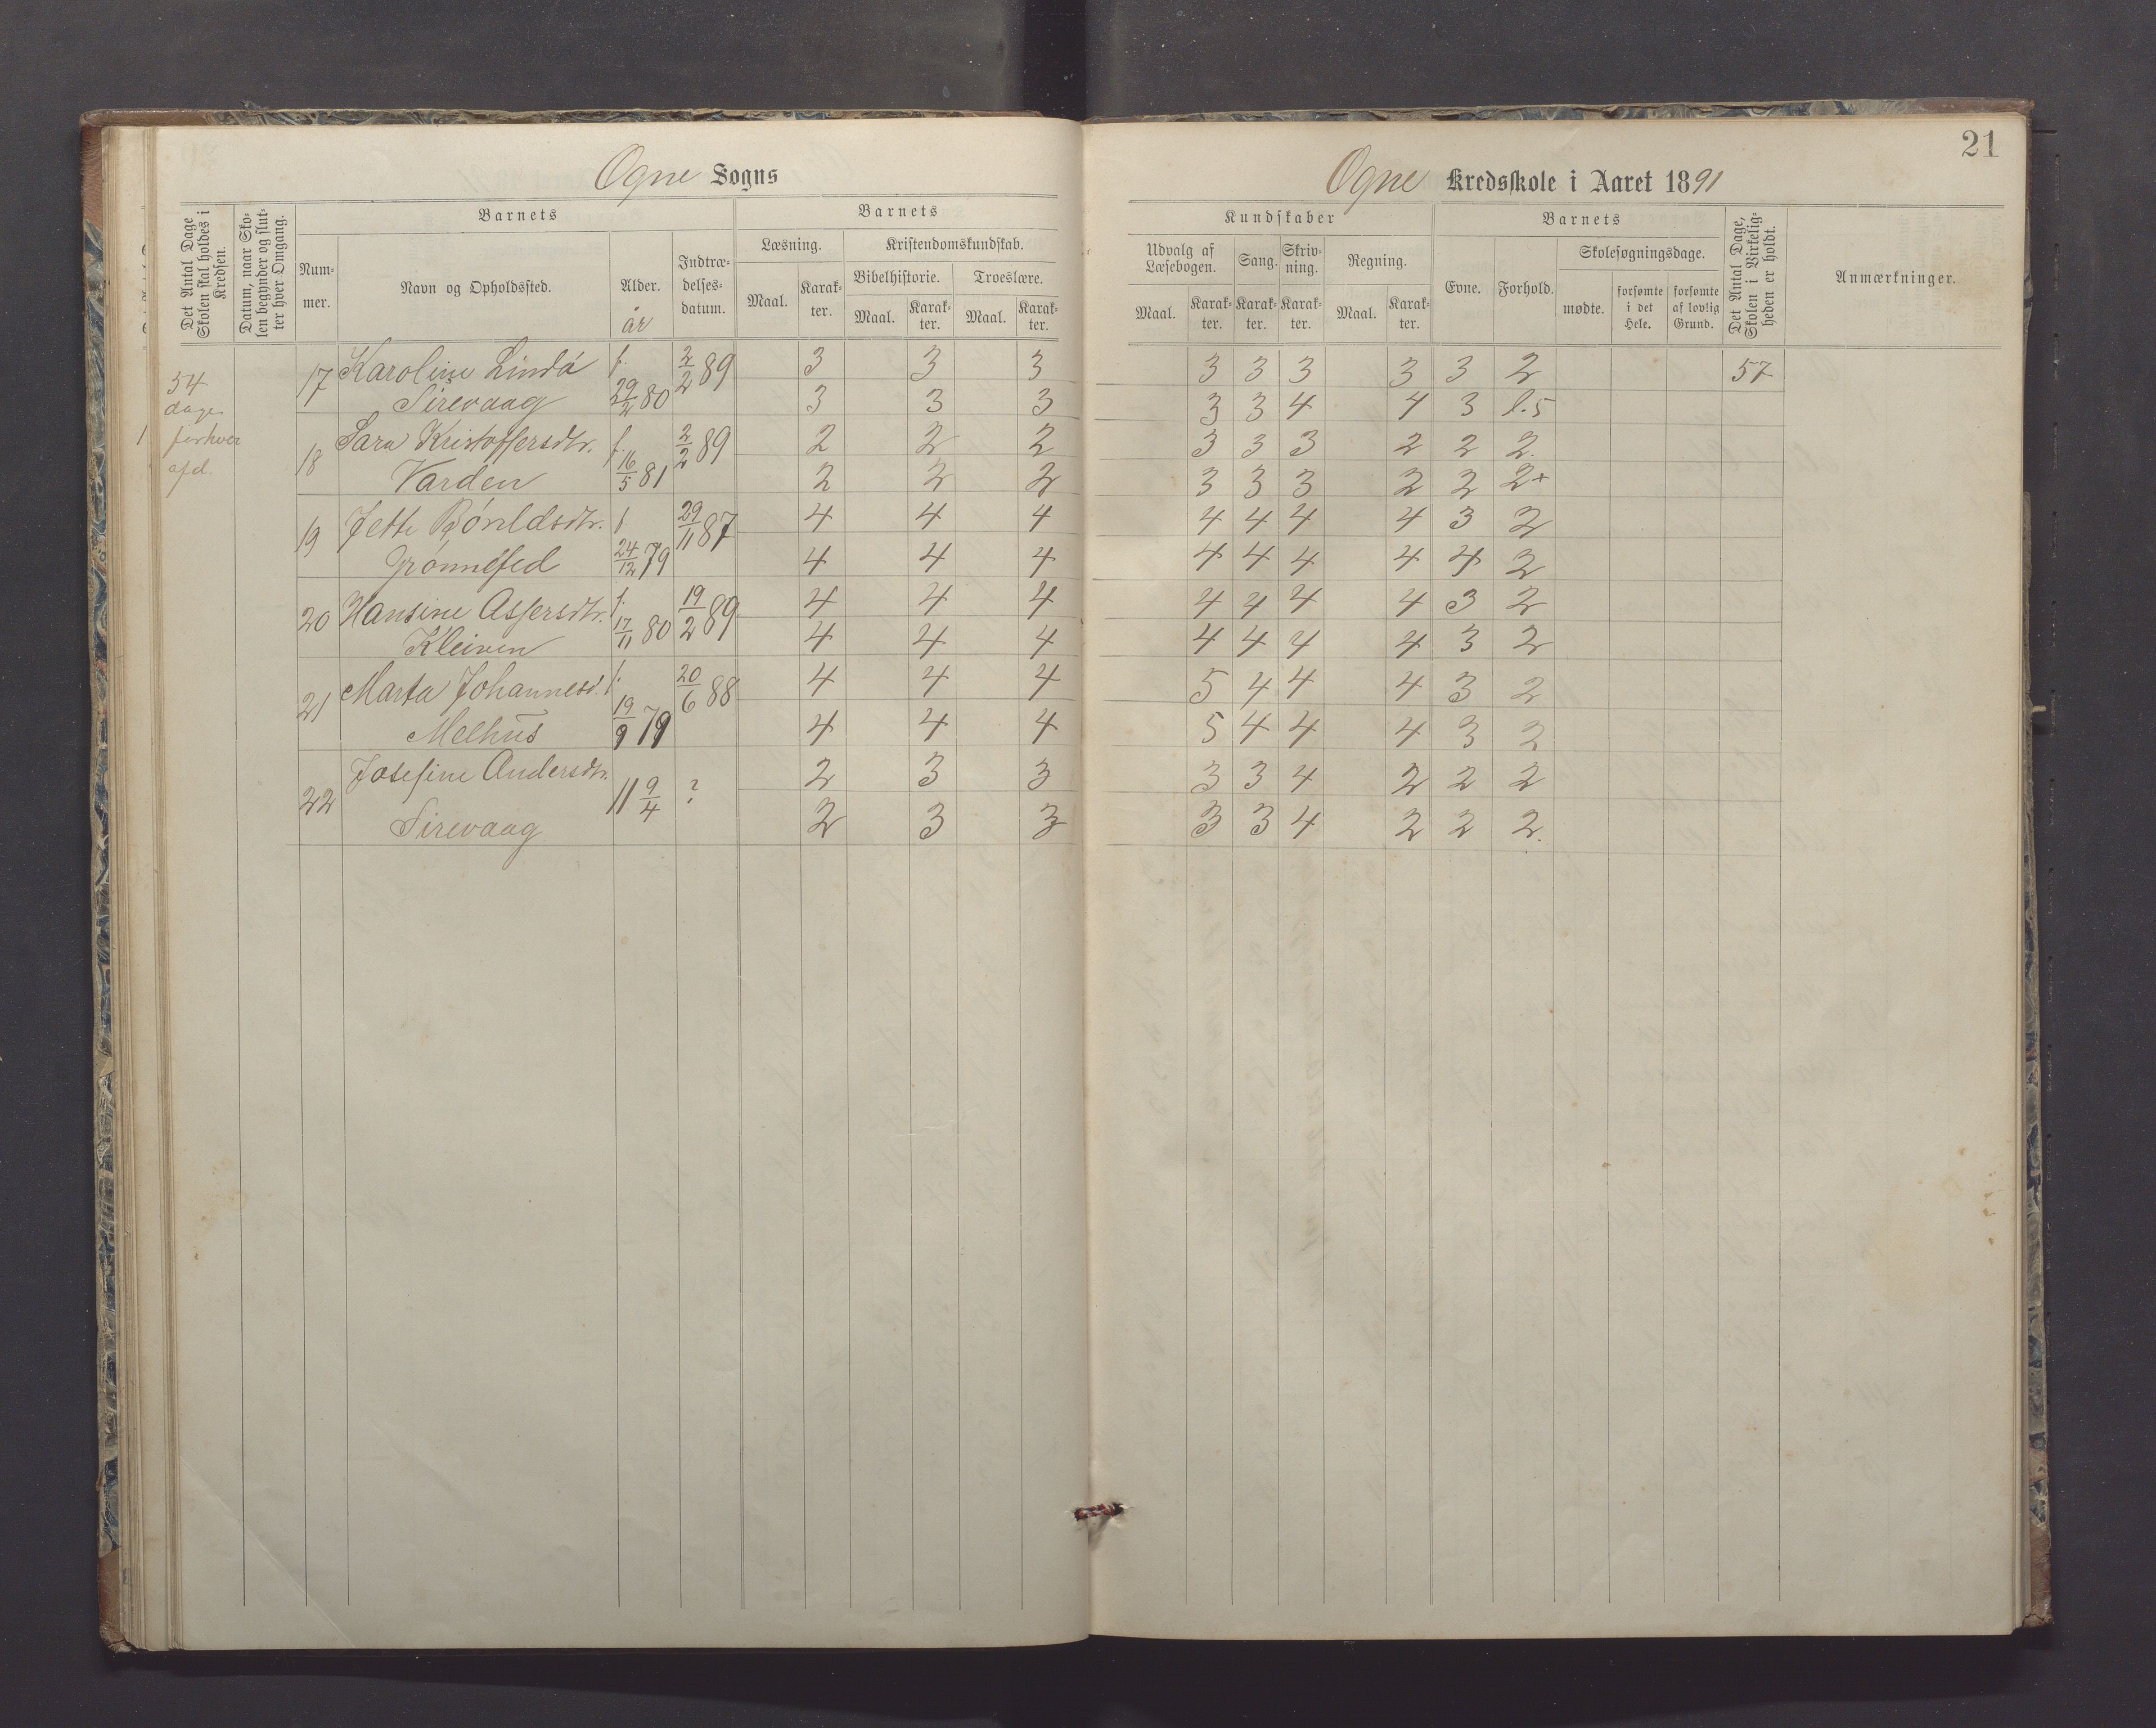 21
Ogne Sogns
Ogne Kredsskole i Aaret 1891
Det Antal Dage Skolen skal holdes i Kredsen.
Datum, naar Skolen begynder og slutter hver Omgang.
Barnets
Nummer.
Navn og Opholdssted.
Alder.
år
Indtrædelsesdatum.
Barnets
Læsning.
Maal.
Karakter.
Kristendomskundskab.
Bibelhistorie.
Maal.
Karakter.
Troeslære.
Maal.
Karakter.
Kundskaber
Udvalg af Læsebogen.
Maal.
Karakter.
Sang.
Karakter.
Skrivning.
Karakter.
Regning.
Maal.
Karakter.
Barnets
Evne.
Forhold.
Skolesøgningsdage.
mødte.
forsømte i det Hele.
forsømte af lovlig Grund.
Det Antal Dage, Skolen i Virkeligheden er holdt.
Anmærkninger.
54 dage for hver afd.
17 Karoline Lindø f. 2/2 89 3 3 3 3 3 3 3 3 2 57
Sirevaag 29/2 80 3 3 3 3 3 4 4 3 l.5
18 Sara Kristoffersdtr. f. 2/2 89 2 2 2 3 3 3 2 2 2.
Varden 16/5 81 2 2 2 3 3 3 2 2 2+
19 Jette f 29/11 87 4 4 4 4 4 4 4 3 2
Grønnesed 24/12 79 4 4 4 4 4 4 4 4 2
20 Hansine Assersdtr. f. 19/2 89 4 4 4 4 4 4 4 3 2
Kleiven 17/11 80 4 4 4 4 4 4 4 3 2
21 Marta Johannesd. f. 20/6 88 4 4 4 5 4 4 4 3 2
Melhus 19/9 79 4 4 4 5 4 4 4 3 2
22 Josefine Andersdtr. 11 9/4 ? 2 3 3 3 3 4 2 2 2
Sirevaag 2 3 3 3 3 4 2 2 2.